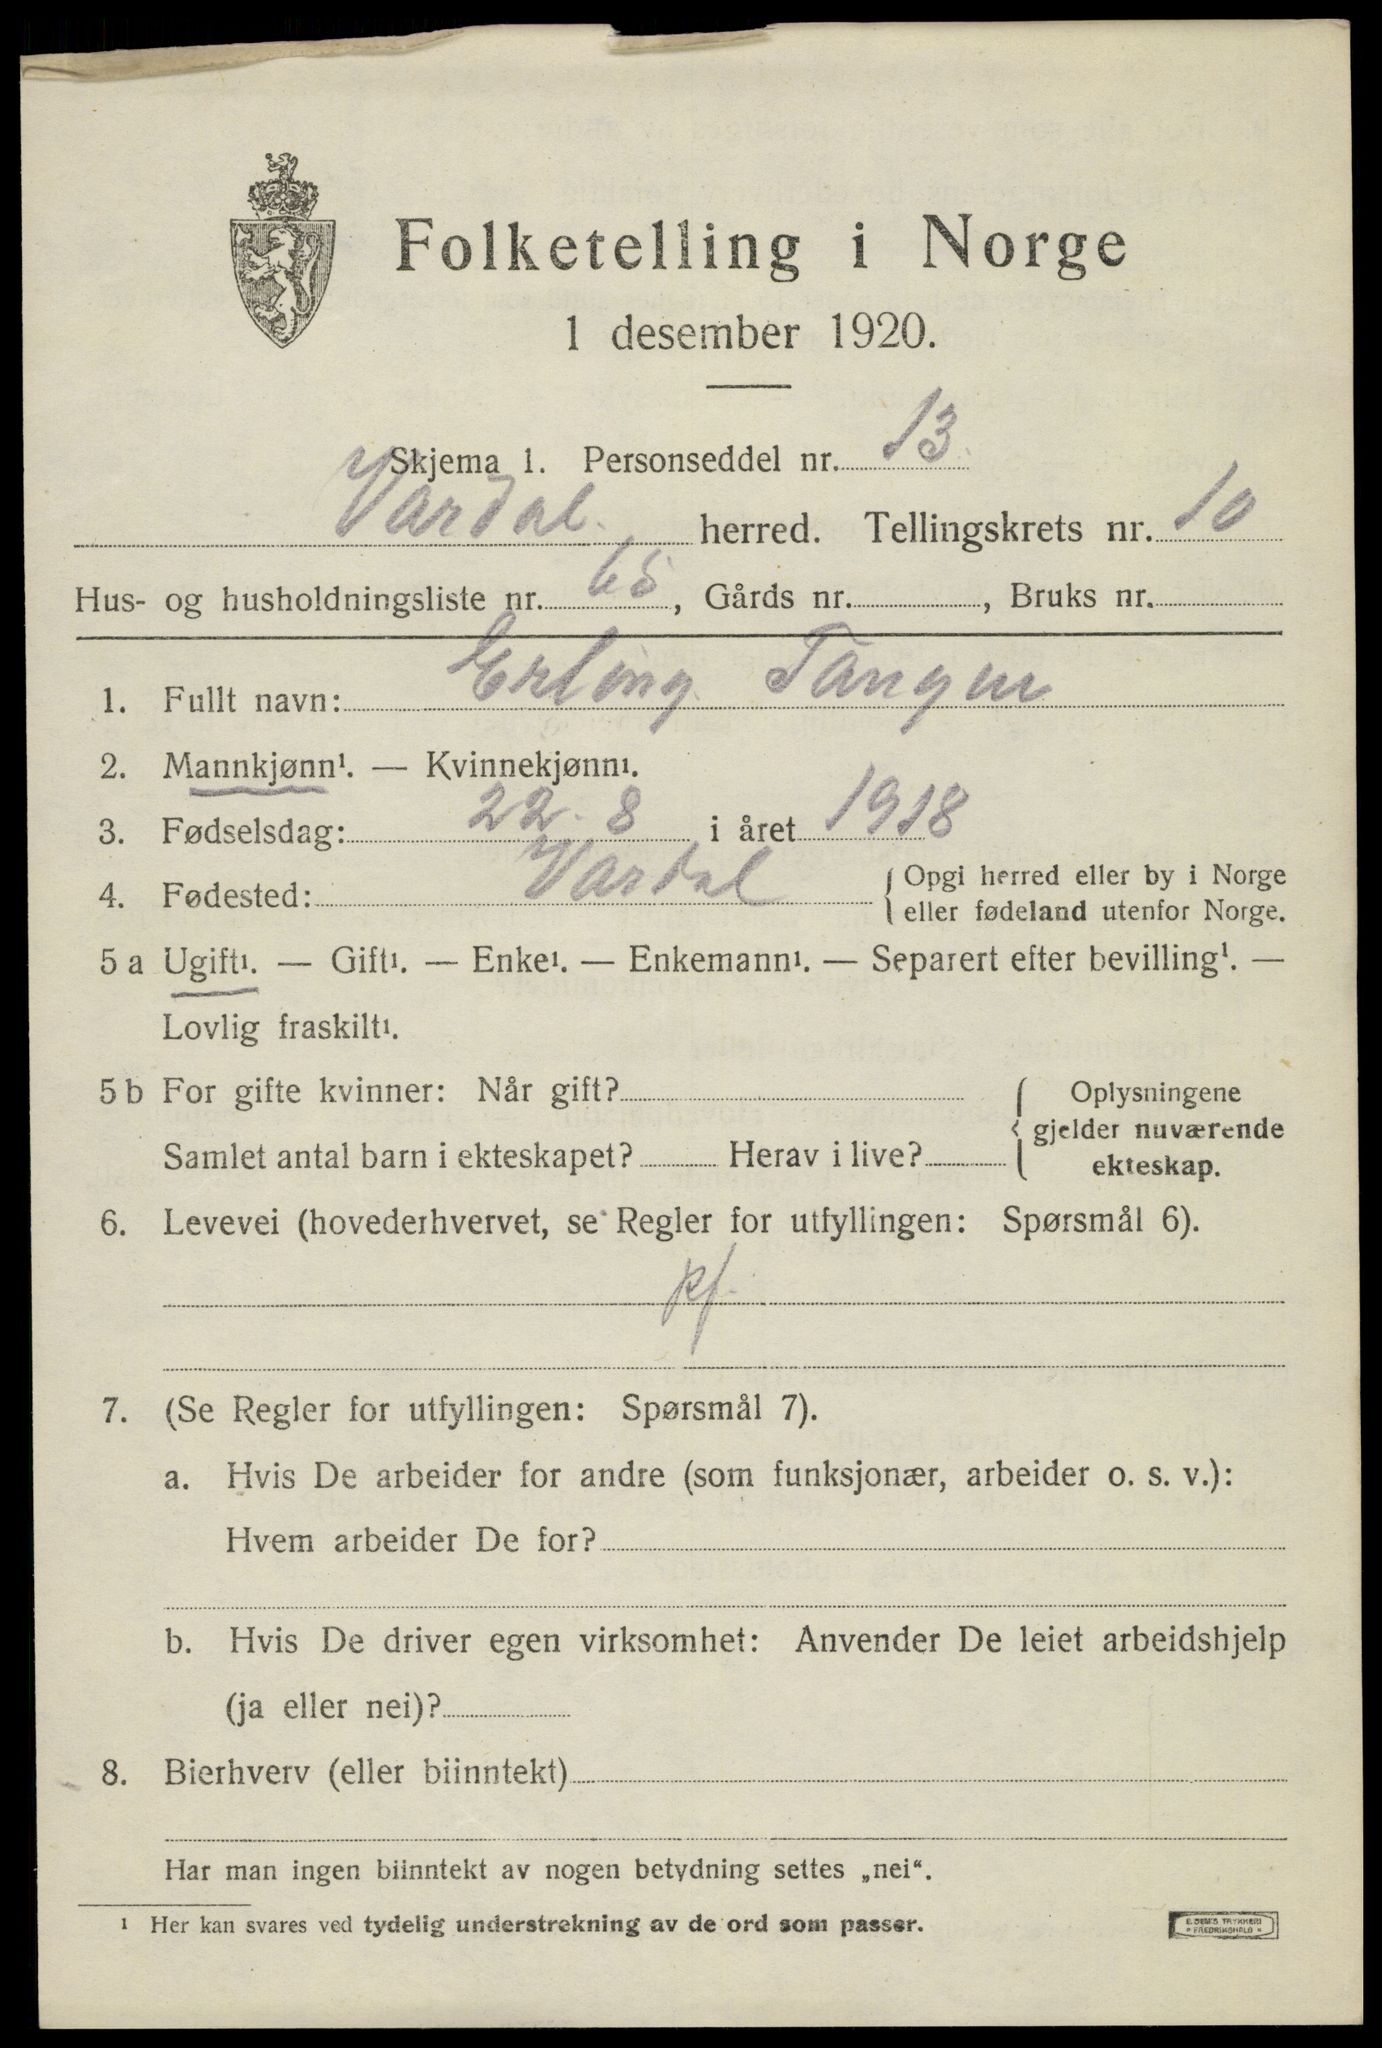 Folketelling i Norge
1 desember 1920.
Skjema 1. Personseddel nr. 13.
Vardal. herred. Tellingskrets nr. 10
Hus- og husholdningsliste nr. 65, Gårds nr. , Bruks nr.
1. Fullt navn: Erling
2. Mannkjønn¹. — Kvinnekjønn¹.
3. Fødselsdag: 22. 8 i året 1918
4. Fødested: Vardal { Opgi herred eller by i Norge
eller fødeland utenfor Norge.
5 a Ugift¹. — Gift¹. — Enke¹. — Enkemann¹. — Separert efter bevilling¹. —
Lovlig fraskilt¹.
5 b For gifte kvinner: Når gift? { Oplysningene
gjelder nuværende
Samlet antal barn i ekteskapet? Herav i live?
ekteskap.
6. Levevei (hovederhvervet, se Regler for utfyllingen: Spørsmål 6).
pf.
7. (Se Regler for utfyllingen: Spørsmål 7).
a. Hvis De arbeider for andre (som funksjonær, arbeider o. s. v.):
Hvem arbeider De for?
b. Hvis De driver egen virksomhet: Anvender De leiet arbeidshjelp
(ja eller nei)?
8. Bierhverv (eller biinntekt)
Har man ingen biinntekt av nogen betydning settes „nei“.
¹ Her kan svares ved tydelig understrekning av de ord som passer.
E. SEM'S TRYKKERI
* FREDRIKSHALD *